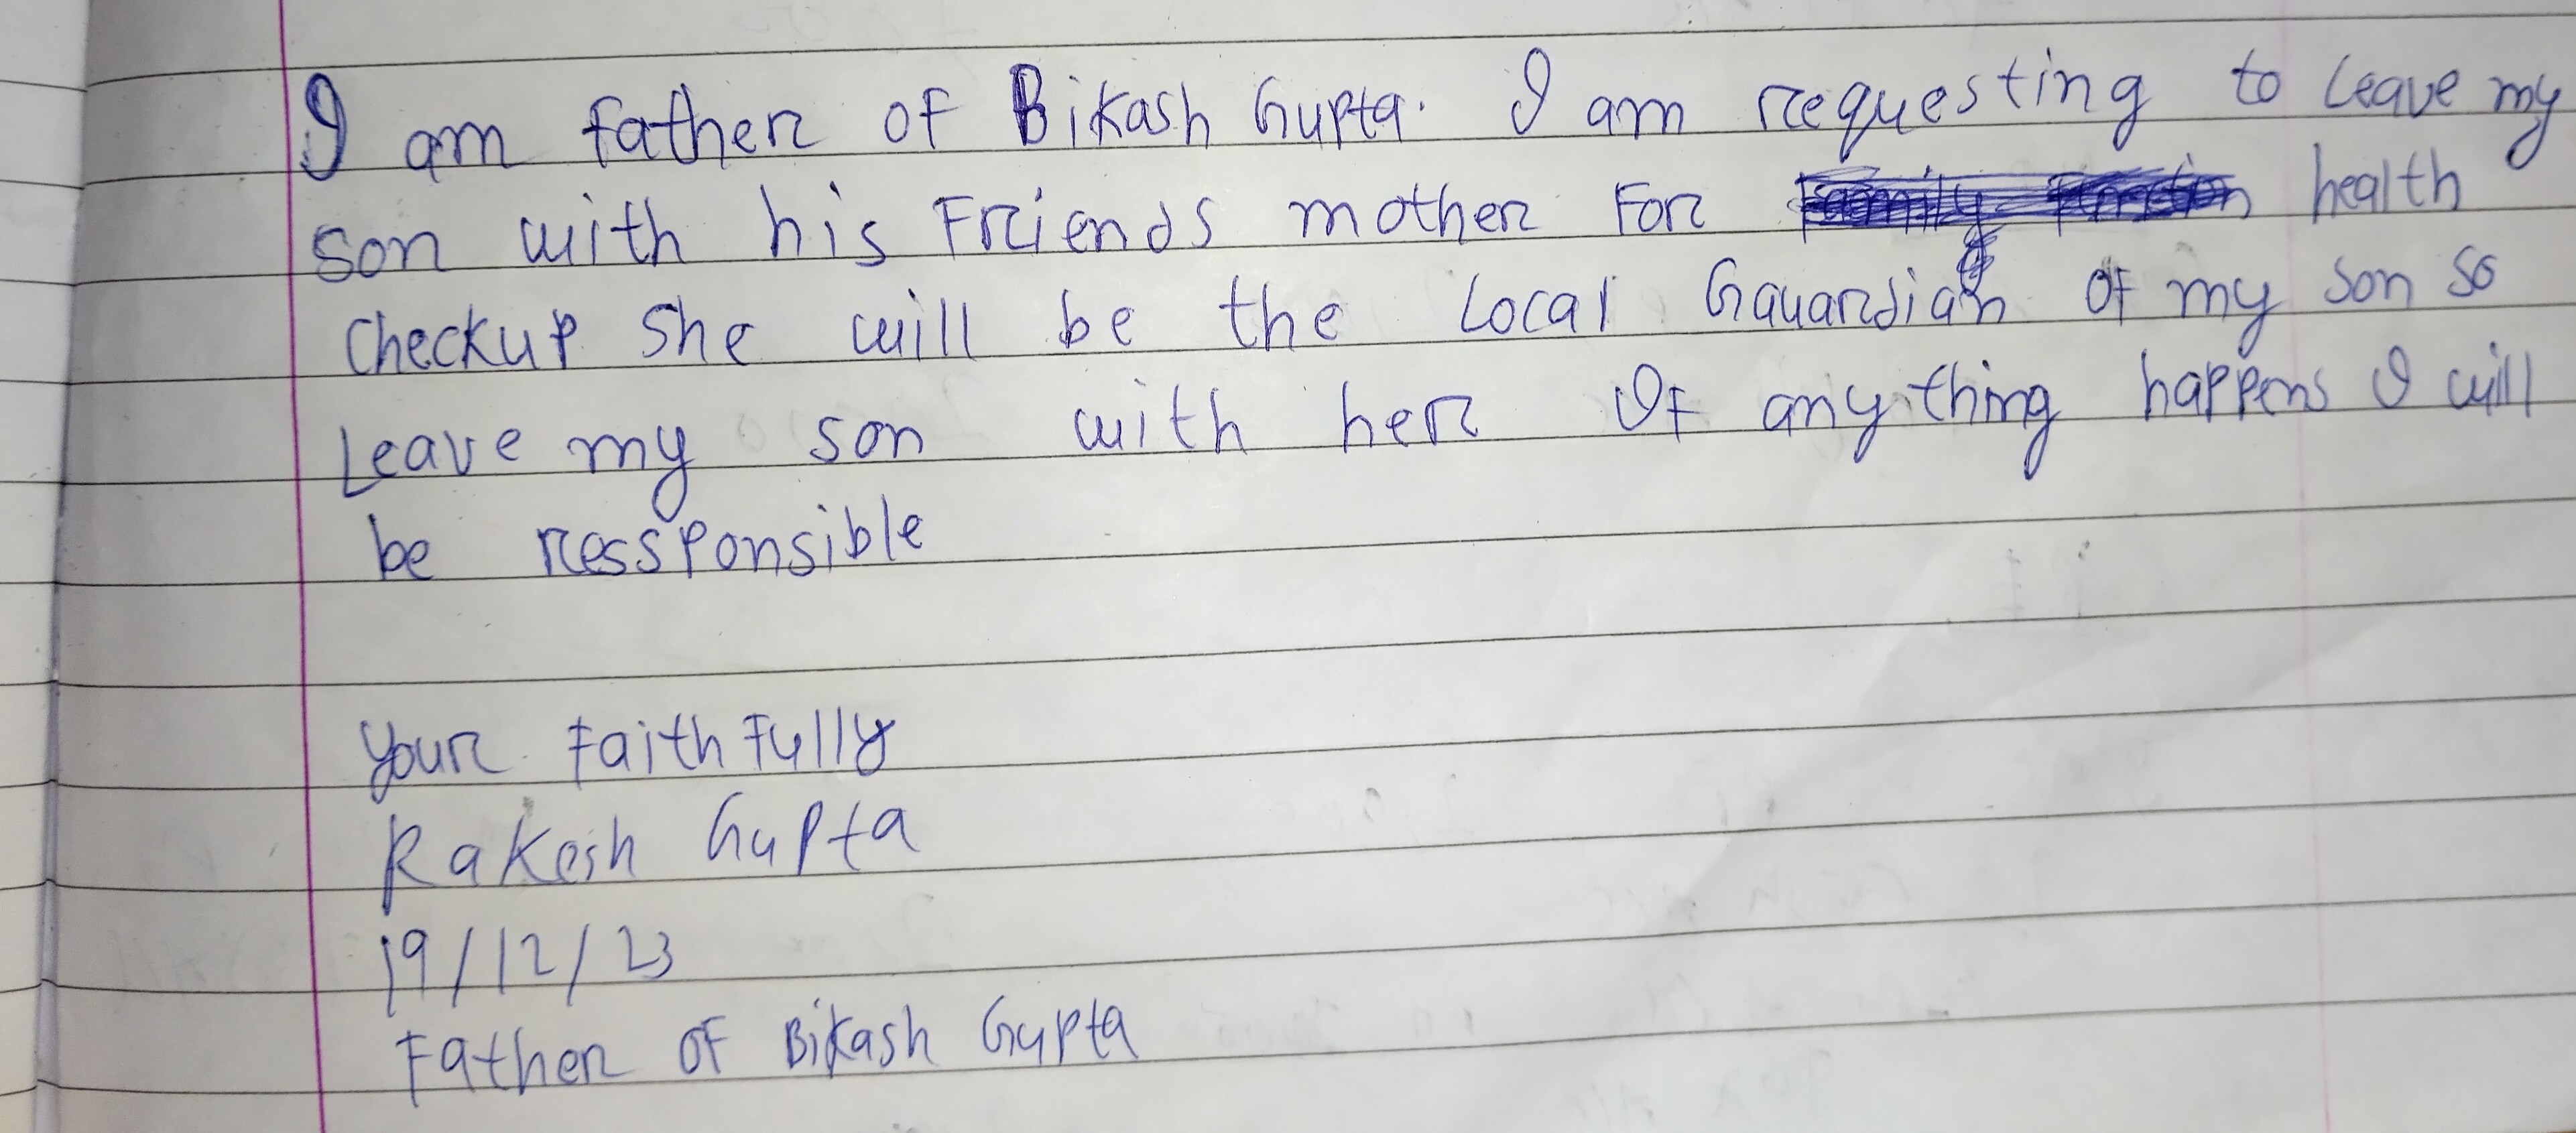 I am father of Bikash Gupta. I am requesting to leave my
son with his Friends mother For health
checkup she will be the Local Gauardian of my son so
Leave my son with her If any thing happens I will
be ressponsible
Your Faith Fully
Rakesh Gupta
19/12/23
Father of Bikash Gupta